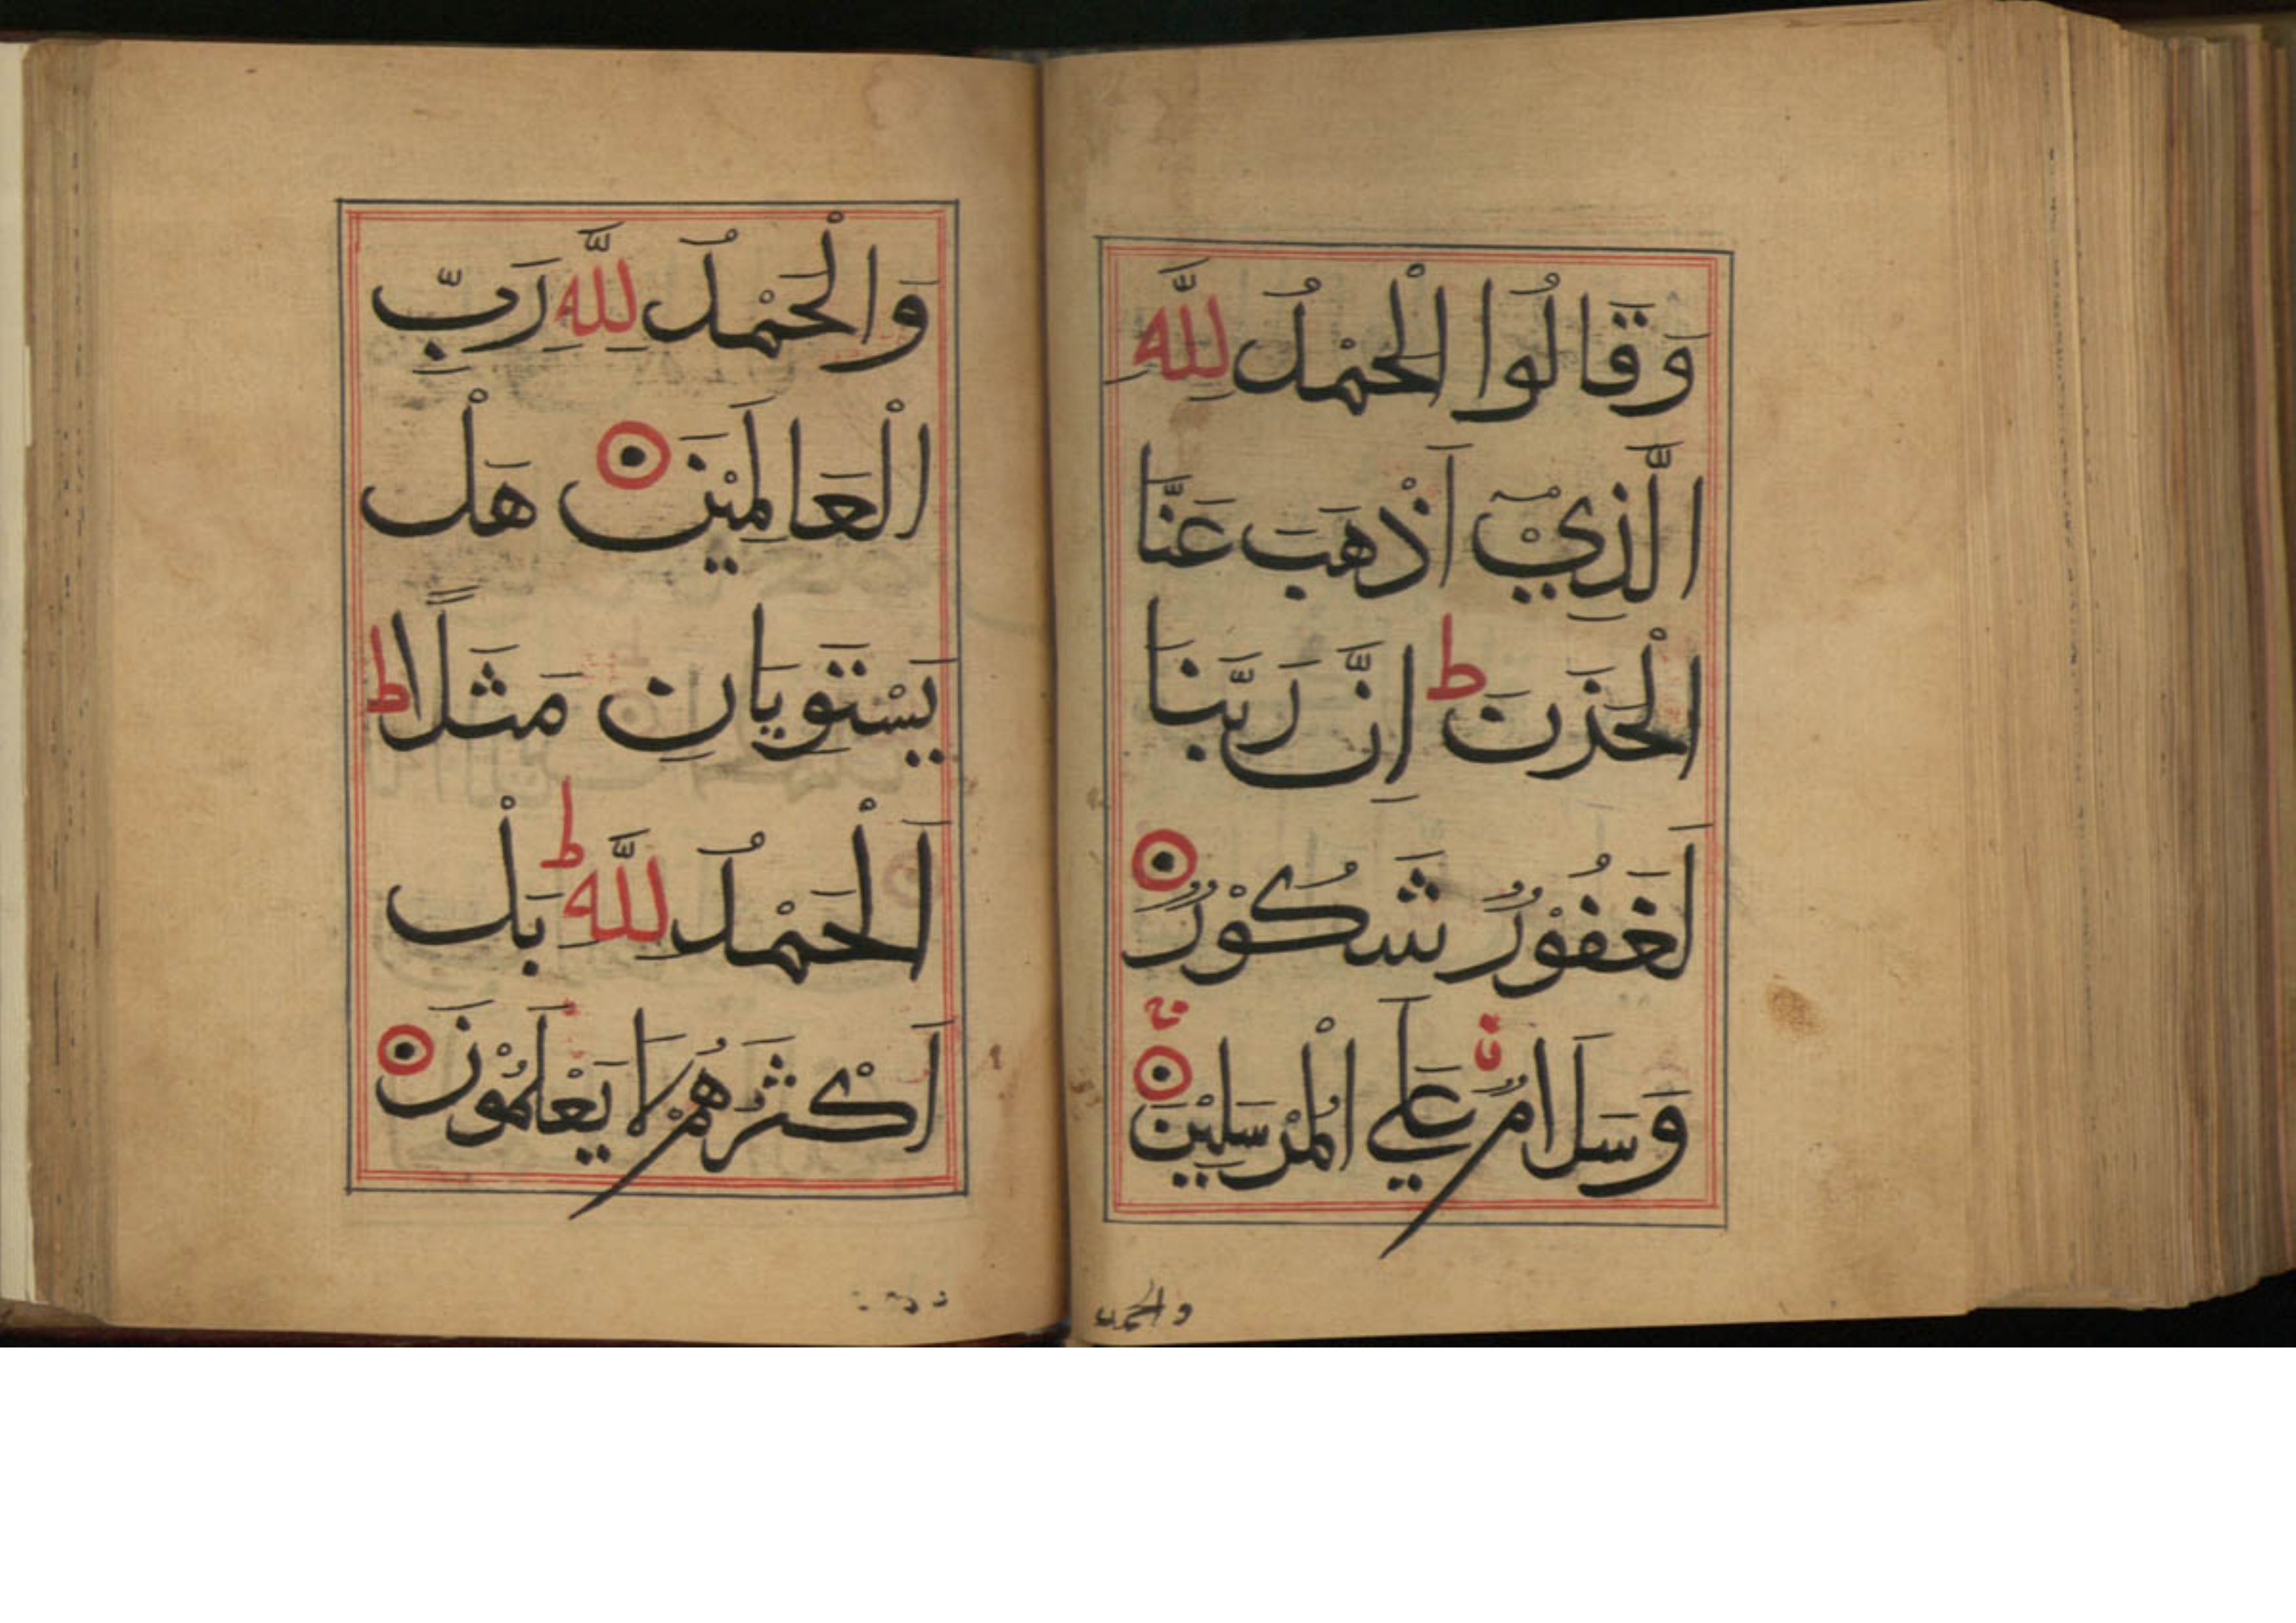 وَقَالُوا الْحَمْدُ لِلَّهِ
الَّذِيْ اَذْهَبَ عَنَّا
الْحَزَنَ ط اِنَّ رَبَّنَا
لَغَفُوْرٌ شَكُوْرٌ
وَسَلَامٌ عَلَي الْمُرْسَلِيْنَ
والحمد
وَالْحَمْدُ لِلَّهِ رَبِّ
الْعَالَمِيْنَ هَلْ
يَسْتَوِيَانِ مَثَلًا ط
اَلْحَمْدُ لِلَّهِ ط بَلْ
اَكْثَرُهُمْ لَا يَعْلَمُوْنَ